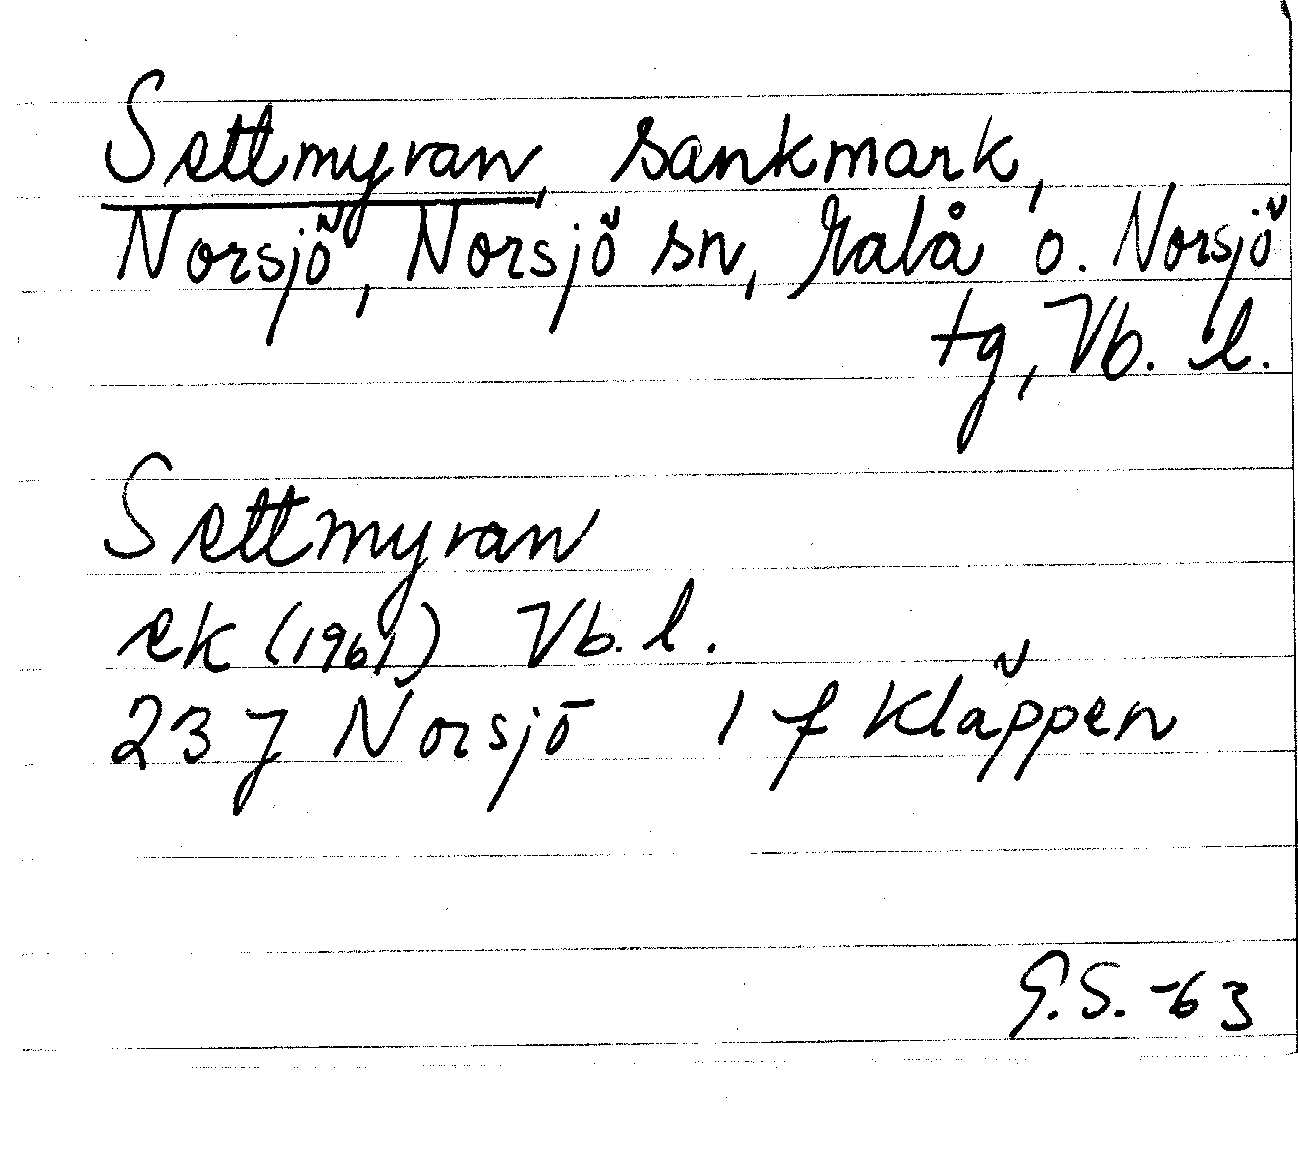 Settmyran, sankmark,
Norsjö, Norsjö sn, Malå o. Norsjö
tg, Vb. l.
Settmyran
ek (1961) Vb. l.
23 J Norsjö 1 f Kläppen
G.S. -63